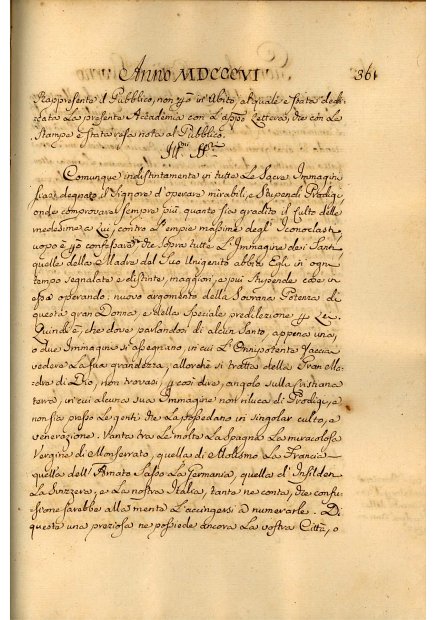 Anno MDCCCVI 361
Rappresenta il Pubblico, non già in abito, al quale è stata dedi-
cata la presente Accademia con l'app.a Lettera, che con la
Stampa è stata resa nota al Pubblico.
Ill.mi Sig.ri
Comunque indistintamente in tutte le Sacre Immagini
siasi degnato il Signore d'operare mirabili, e stupendi Prodigi,
onde comprovare sempre più quanto sia gradito il culto delle
medesime a Lui, contro l'empie massime degl'Iconoclasti,
uopo è però confessare che sopra tutte l'Immagine dei Santi
quelle della Madre del Suo Unigenito abbia Egli in ogni
tempo segnalate e distinte, maggiori, e più stupende cose in
esse operando: nuovo argomento della Sovrana Potenza di
questa gran Donna, e della speciale predilezione per Lei.
Quindi è, che dove parlandosi di alcun Santo, appena una,
o due Immagine si assegnano, in cui l'Onnipotente faccia
vedere la sua grandezza, allorchè si tratta della Gran Ma-
dre di Dio, non trovasi, per così dire, angolo sulla Cristiana
terra, in cui alcuna sua Immagine non riluca di Prodigi, e
non sia presso le genti che la possedano in singolar culto, e
venerazione. Vanta tra le molte la Spagna la miracolosa
Vergine di Monserrato, quella di la Francia
quella dell' Amato Sasso la Germania, quella d'
la Svizzera, e la nostra Italia, tante ne conta, che confu-
sione sarebbe alla mente l'accingersi a numerarle. Di
queste una preziosa ne possiede ancora la vostra Città, o